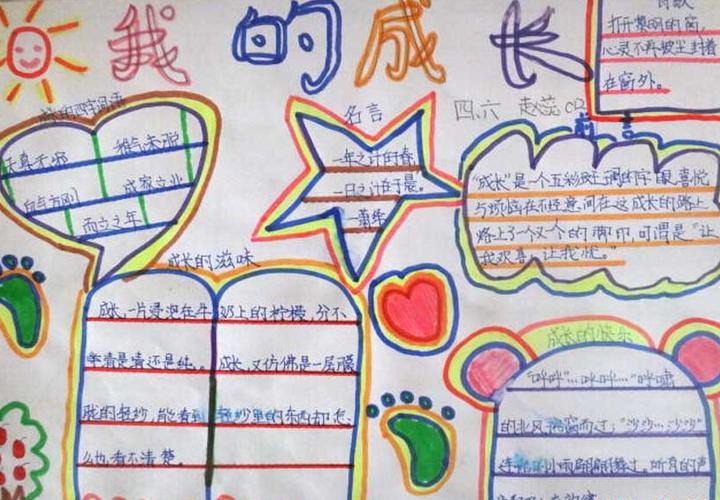 我的成长
打开黎明的窗，
心灵不再被尘封着
在窗外。
成长的四字词语
天真无邪
稚气未脱
血气方刚
成家立业
而立之年
名言
一年之计在于春
一日之计在于晨。
四、六
前言
"成长"是一个五彩 喜悦
与烦恼在不经意间在这成长的路上
烙上了一个又一个的脚印，可谓是"让
我欢喜，让我忧。"
成长的滋味
成长，一片浸泡在牛奶上的柠檬，分不
清是 还是纯。成长，又仿佛是一层朦
胧的轻纱，能看到轻纱里的东西却怎
么也看不清楚。
成长的快乐
"哗哗"…哗哗…"呼啸
的北风 而过；"沙沙…沙沙"